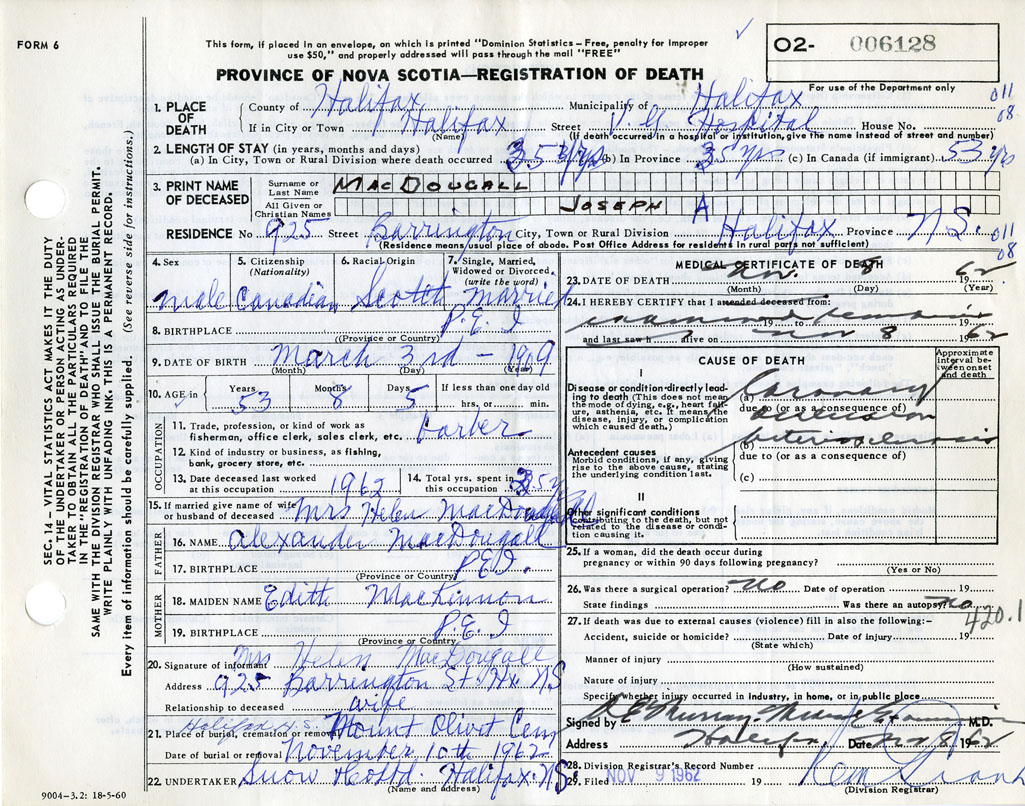 FORM 6
This form, if placed in an envelope, on which is printed "Dominion Statistics – Free, penalty for improper
use $50," and properly addressed will pass through the mail "FREE"
O2- 006128
For use of the Department only
PROVINCE OF NOVA SCOTIA—REGISTRATION OF DEATH
SEC. 14 – VITAL STATISTICS ACT MAKES IT THE DUTY
OF THE UNDERTAKER OR PERSON ACTING AS UNDER-
TAKER TO OBTAIN ALL THE PARTICULARS REQUIRED
IN THE "REGISTRATION OF DEATH" AND TO FILE THE
SAME WITH THE DIVISION REGISTRAR WHO SHALL ISSUE THE BURIAL PERMIT.
WRITE PLAINLY WITH UNFADING INK. THIS IS A PERMANENT RECORD.
Every item of information should be carefully supplied. (See reverse side for instructions.)
1. PLACE OF DEATH
County of Halifax Municipality of Halifax 011
If in City or Town Halifax Street V. G. Hospital House No. 08
(Name) (If death occurred in a hospital or institution, give the name instead of street and number)
2. LENGTH OF STAY (in years, months and days)
(a) In City, Town or Rural Division where death occurred 35 yrs (b) In Province 35 yrs (c) In Canada (if immigrant) 53 yrs
3. PRINT NAME OF DECEASED
Surname or Last Name MACDOUGALL
All Given or Christian Names JOSEPH A
RESIDENCE No 925 Street Barrington City, Town or Rural Division Halifax Province N.S. 011
08
(Residence means usual place of abode. Post Office Address for residents in rural parts not sufficient)
4. Sex male
5. Citizenship (Nationality) Canadian
6. Racial Origin Scotch
7. Single, Married, Widowed or Divorced. (write the word) married
8. BIRTHPLACE P.E.I
(Province or Country)
9. DATE OF BIRTH March 3rd – 1909
(Month) (Day) (Year)
10. AGE in Years 53 Months 8 Days 5 If less than one day old hrs. or min.
OCCUPATION
11. Trade, profession, or kind of work as
fisherman, office clerk, sales clerk, etc. barber
12. Kind of industry or business, as fishing,
bank, grocery store, etc.
13. Date deceased last worked
at this occupation 1962
14. Total yrs. spent in
this occupation 35 y
15. If married give name of wife
or husband of deceased Mrs Helen MacDougall
FATHER
16. NAME Alexander MacDougall
17. BIRTHPLACE P.E.I.
(Province or Country)
MOTHER
18. MAIDEN NAME Edith MacKinnon
19. BIRTHPLACE P.E.I
(Province or Country)
20. Signature of informant Mrs Helen MacDougall
Address 925 Barrington St. Hx NS
Relationship to deceased wife
21. Place of burial, cremation or removal Halifax N.S. Mount Olivit Cem
Date of burial or removal November 10th 1962
22. UNDERTAKER Snow Co Ltd. Halifax NS
(Name and address)
9004-3.2: 18-5-60
MEDICAL CERTIFICATE OF DEATH
23. DATE OF DEATH Nov. 8 1962
(Month) (Day) (Year)
24. I HEREBY CERTIFY that I attended deceased from:
examined remains 19 to 19
and last saw h alive on Nov 8 1962
CAUSE OF DEATH
Approximate interval between onset and death
I
Disease or condition directly lead-
ing to death (This does not mean
the mode of dying, e.g., heart fail-
ure, asthenia, etc. It means the
disease, injury, or complication
which caused death.)
(a) Coronary
due to (or as a consequence of)
occlusion
Antecedent causes
Morbid conditions, if any, giving
rise to the above cause, stating
the underlying condition last.
(b)
due to (or as a consequence of)
(c)
II
Other significant conditions
contributing to the death, but not
related to the disease or condi-
tion causing it.
25. If a woman, did the death occur during
pregnancy or within 90 days following pregnancy?
(Yes or No)
26. Was there a surgical operation? no Date of operation 19
State findings Was there an autopsy? no
420.1
27. If death was due to external causes (violence) fill in also the following:–
Accident, suicide or homicide? Date of injury 19
(State which)
Manner of injury
(How sustained)
Nature of injury
Specify whether injury occurred in industry, in home, or in public place
Signed by Murray Medical Examiner M.D.
Address Halifax Date Nov 8 1962
28. Division Registrar's Record Number
29. Filed NOV 9 1962 19
(Division Registrar)